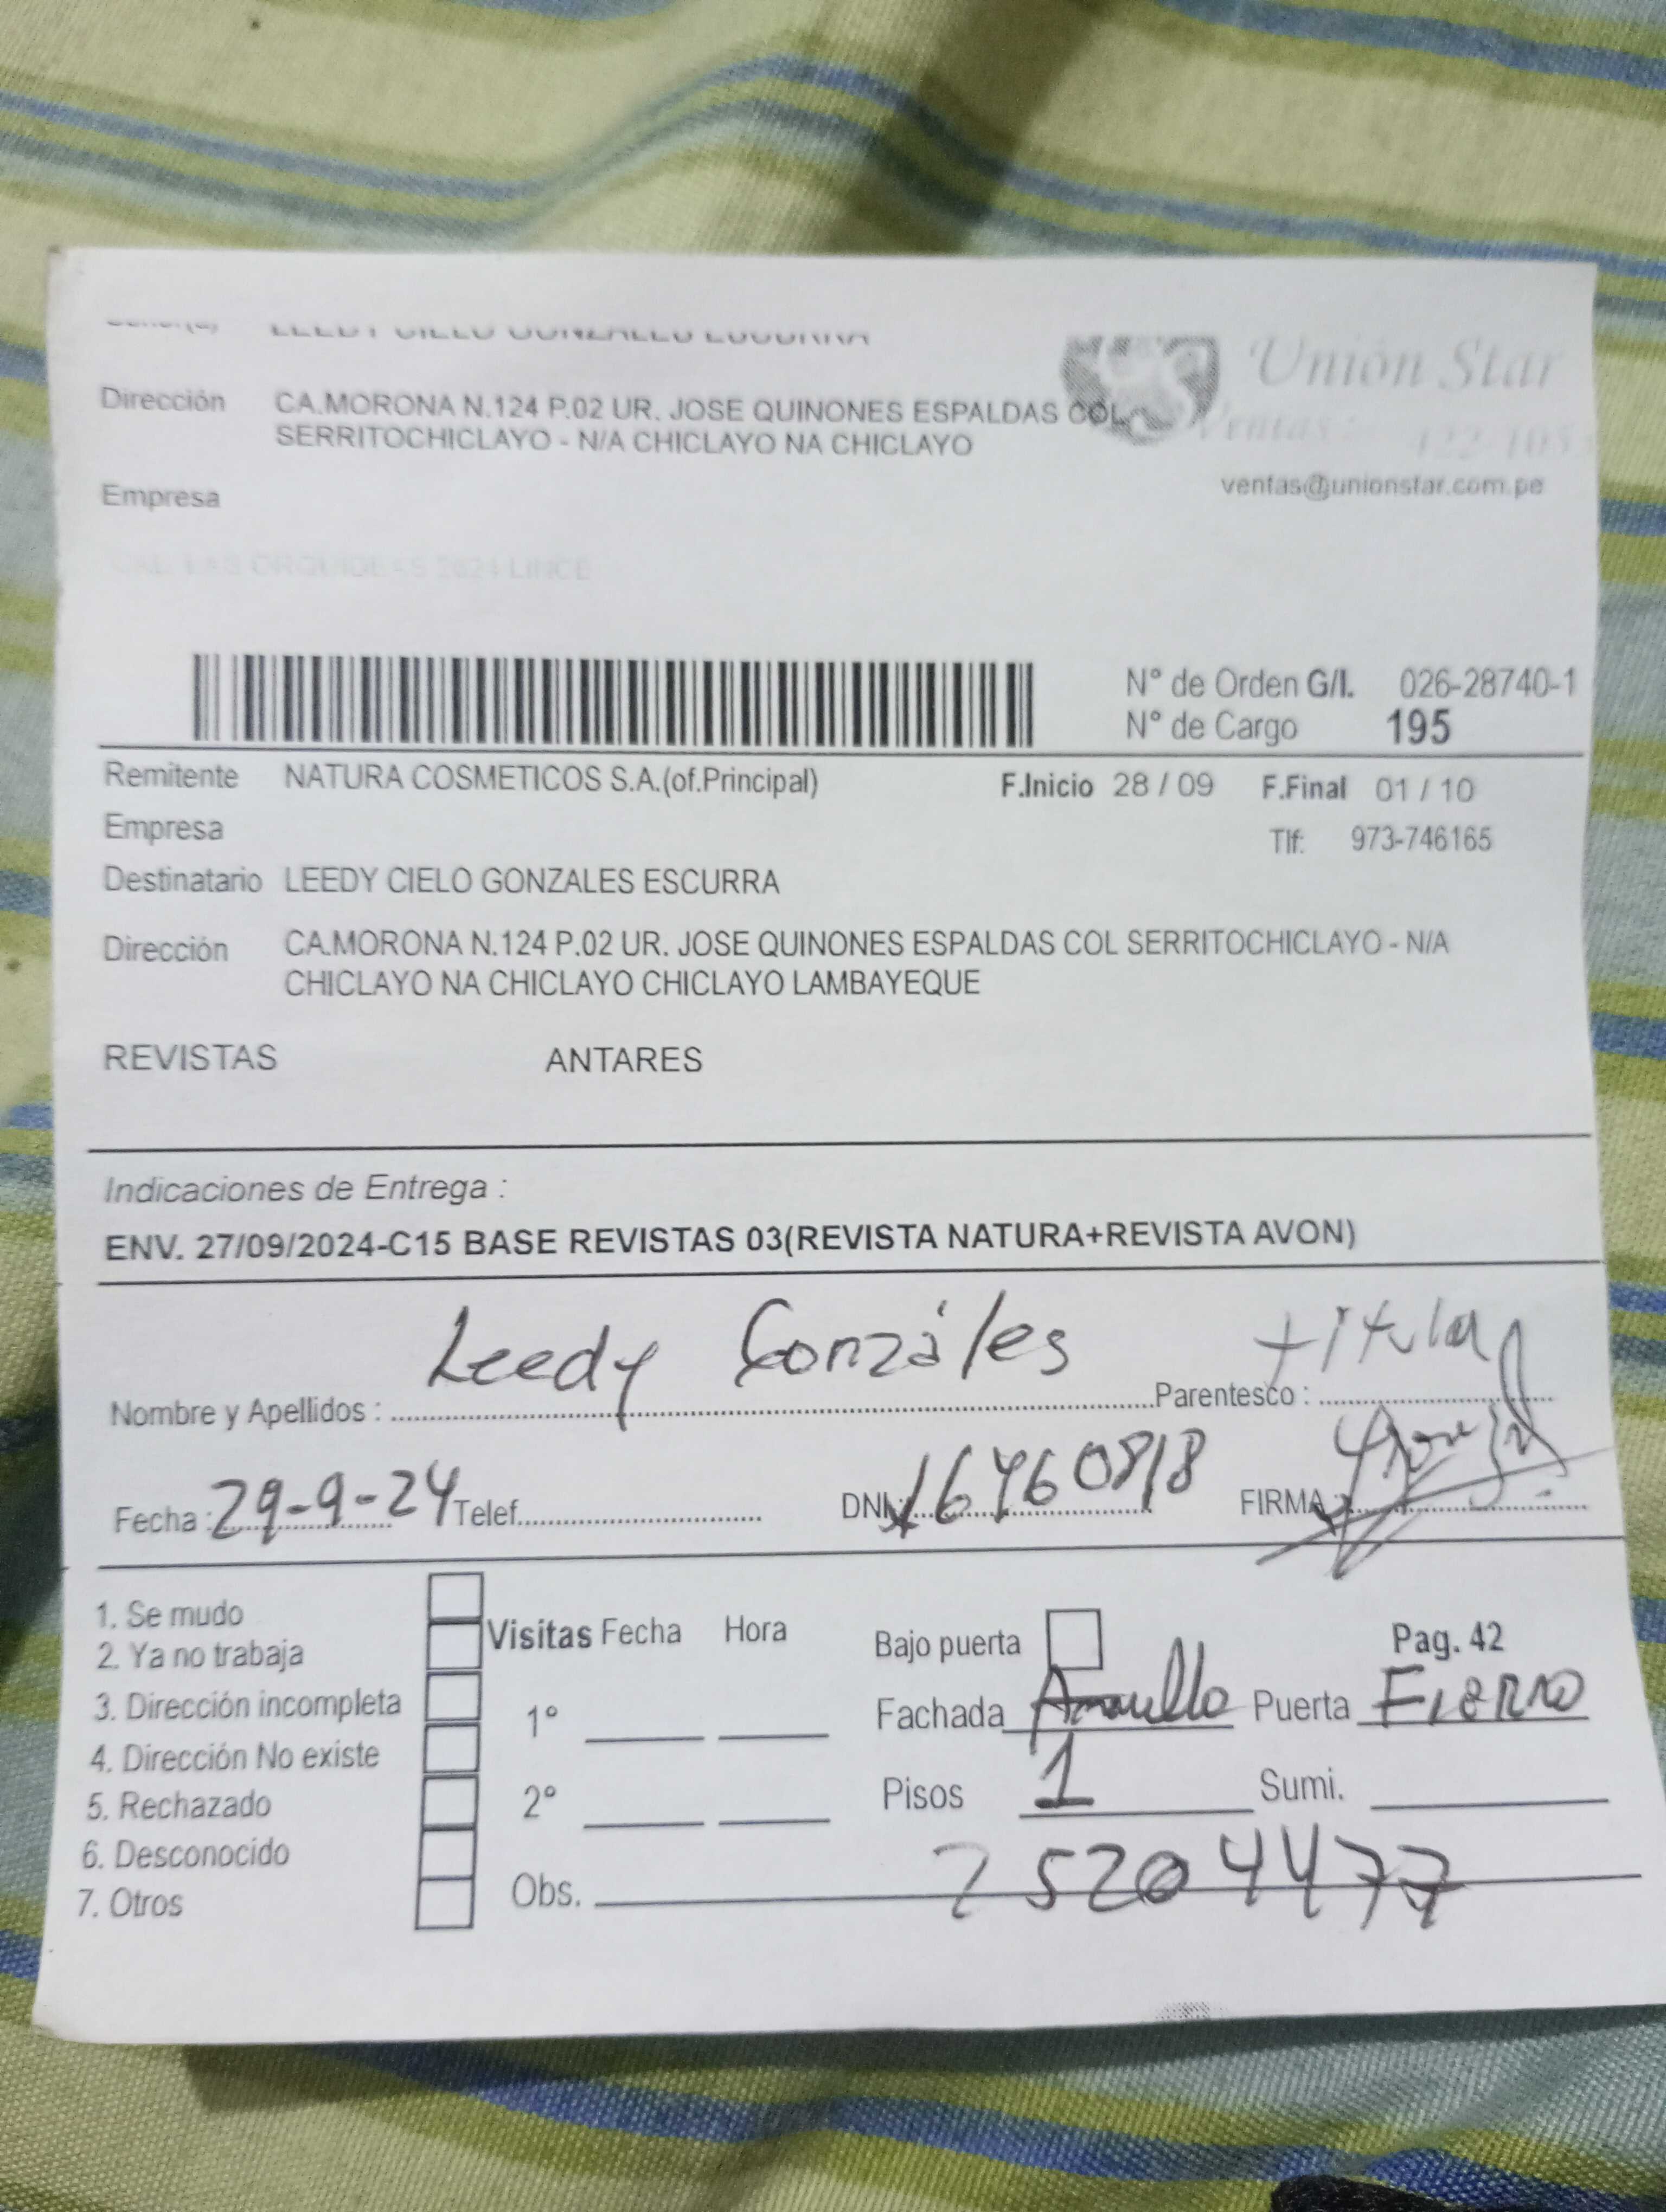 LEEDY CIELO GONZALES ESCURRA
Unión Star
Dirección CA.MORONA N.124 P.02 UR. JOSE QUINONES ESPALDAS COL
SERRITOCHICLAYO - N/A CHICLAYO NA CHICLAYO
Ventas:
ventas@unionstar.com.pe
Empresa
CAL. LAS ORQUIDEAS 2624 LINCE
N° de Orden G/I. 026-28740-1
N° de Cargo 195
Remitente NATURA COSMETICOS S.A.(of.Principal) F.Inicio 28 / 09 F.Final 01 / 10
Empresa Tlf: 973-746165
Destinatario LEEDY CIELO GONZALES ESCURRA
Dirección CA.MORONA N.124 P.02 UR. JOSE QUINONES ESPALDAS COL SERRITOCHICLAYO - N/A
CHICLAYO NA CHICLAYO CHICLAYO LAMBAYEQUE
REVISTAS ANTARES
Indicaciones de Entrega :
ENV. 27/09/2024-C15 BASE REVISTAS 03(REVISTA NATURA+REVISTA AVON)
Nombre y Apellidos : Leedy Gonzáles Parentesco : titular
Fecha : 29-9-24 Telef. DNI : FIRMA :
1. Se mudo
2. Ya no trabaja
3. Dirección incompleta
4. Dirección No existe
5. Rechazado
6. Desconocido
7. Otros
Visitas Fecha Hora
1°
2°
Obs. 25204477
Bajo puerta Pag. 42
Fachada Amarillo Puerta Fierro
Pisos 1 Sumi.